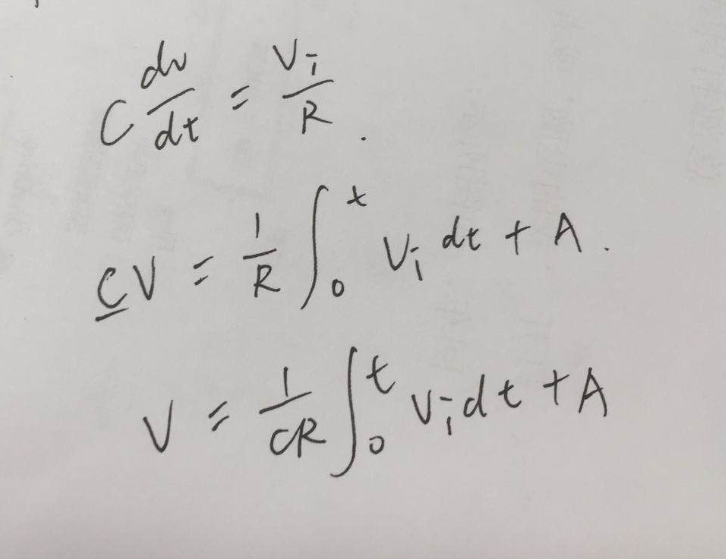 C dv/dt = Vi/R.
CV = 1/R ∫₀ᵗ Vi dt + A.
V = 1/CR ∫₀ᵗ Vi dt + A